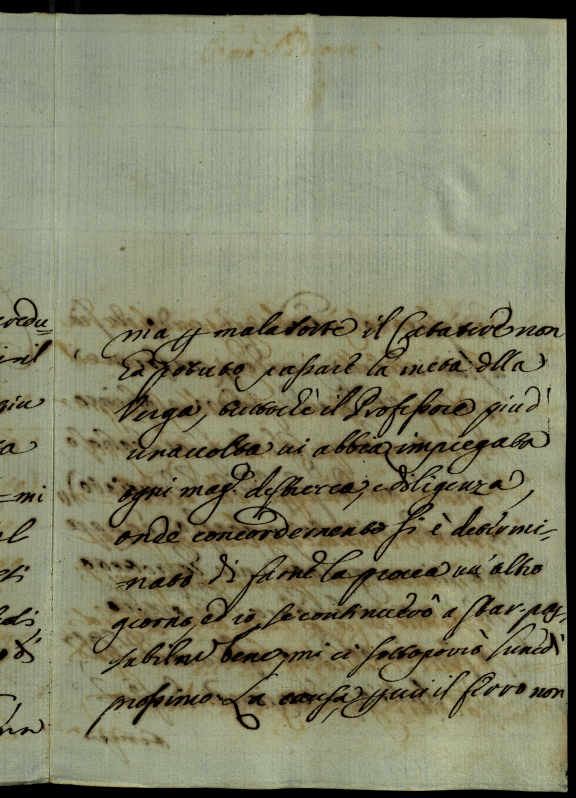 nia p mala sorte il Catatere non
ha potuto passare la metà della
Verga, tuttochè il Professore più d'
una volta vi abbia impiegata
ogni mag.e destrezza, e diligenza,
onde concordemente si è determi=
nato di farne la prova un'altro
giorno, ed io, se continuerò a star pas=
sabilmte bene, mi ci sottoporrò lunedì
prossimo. La causa, p cui il ferro non